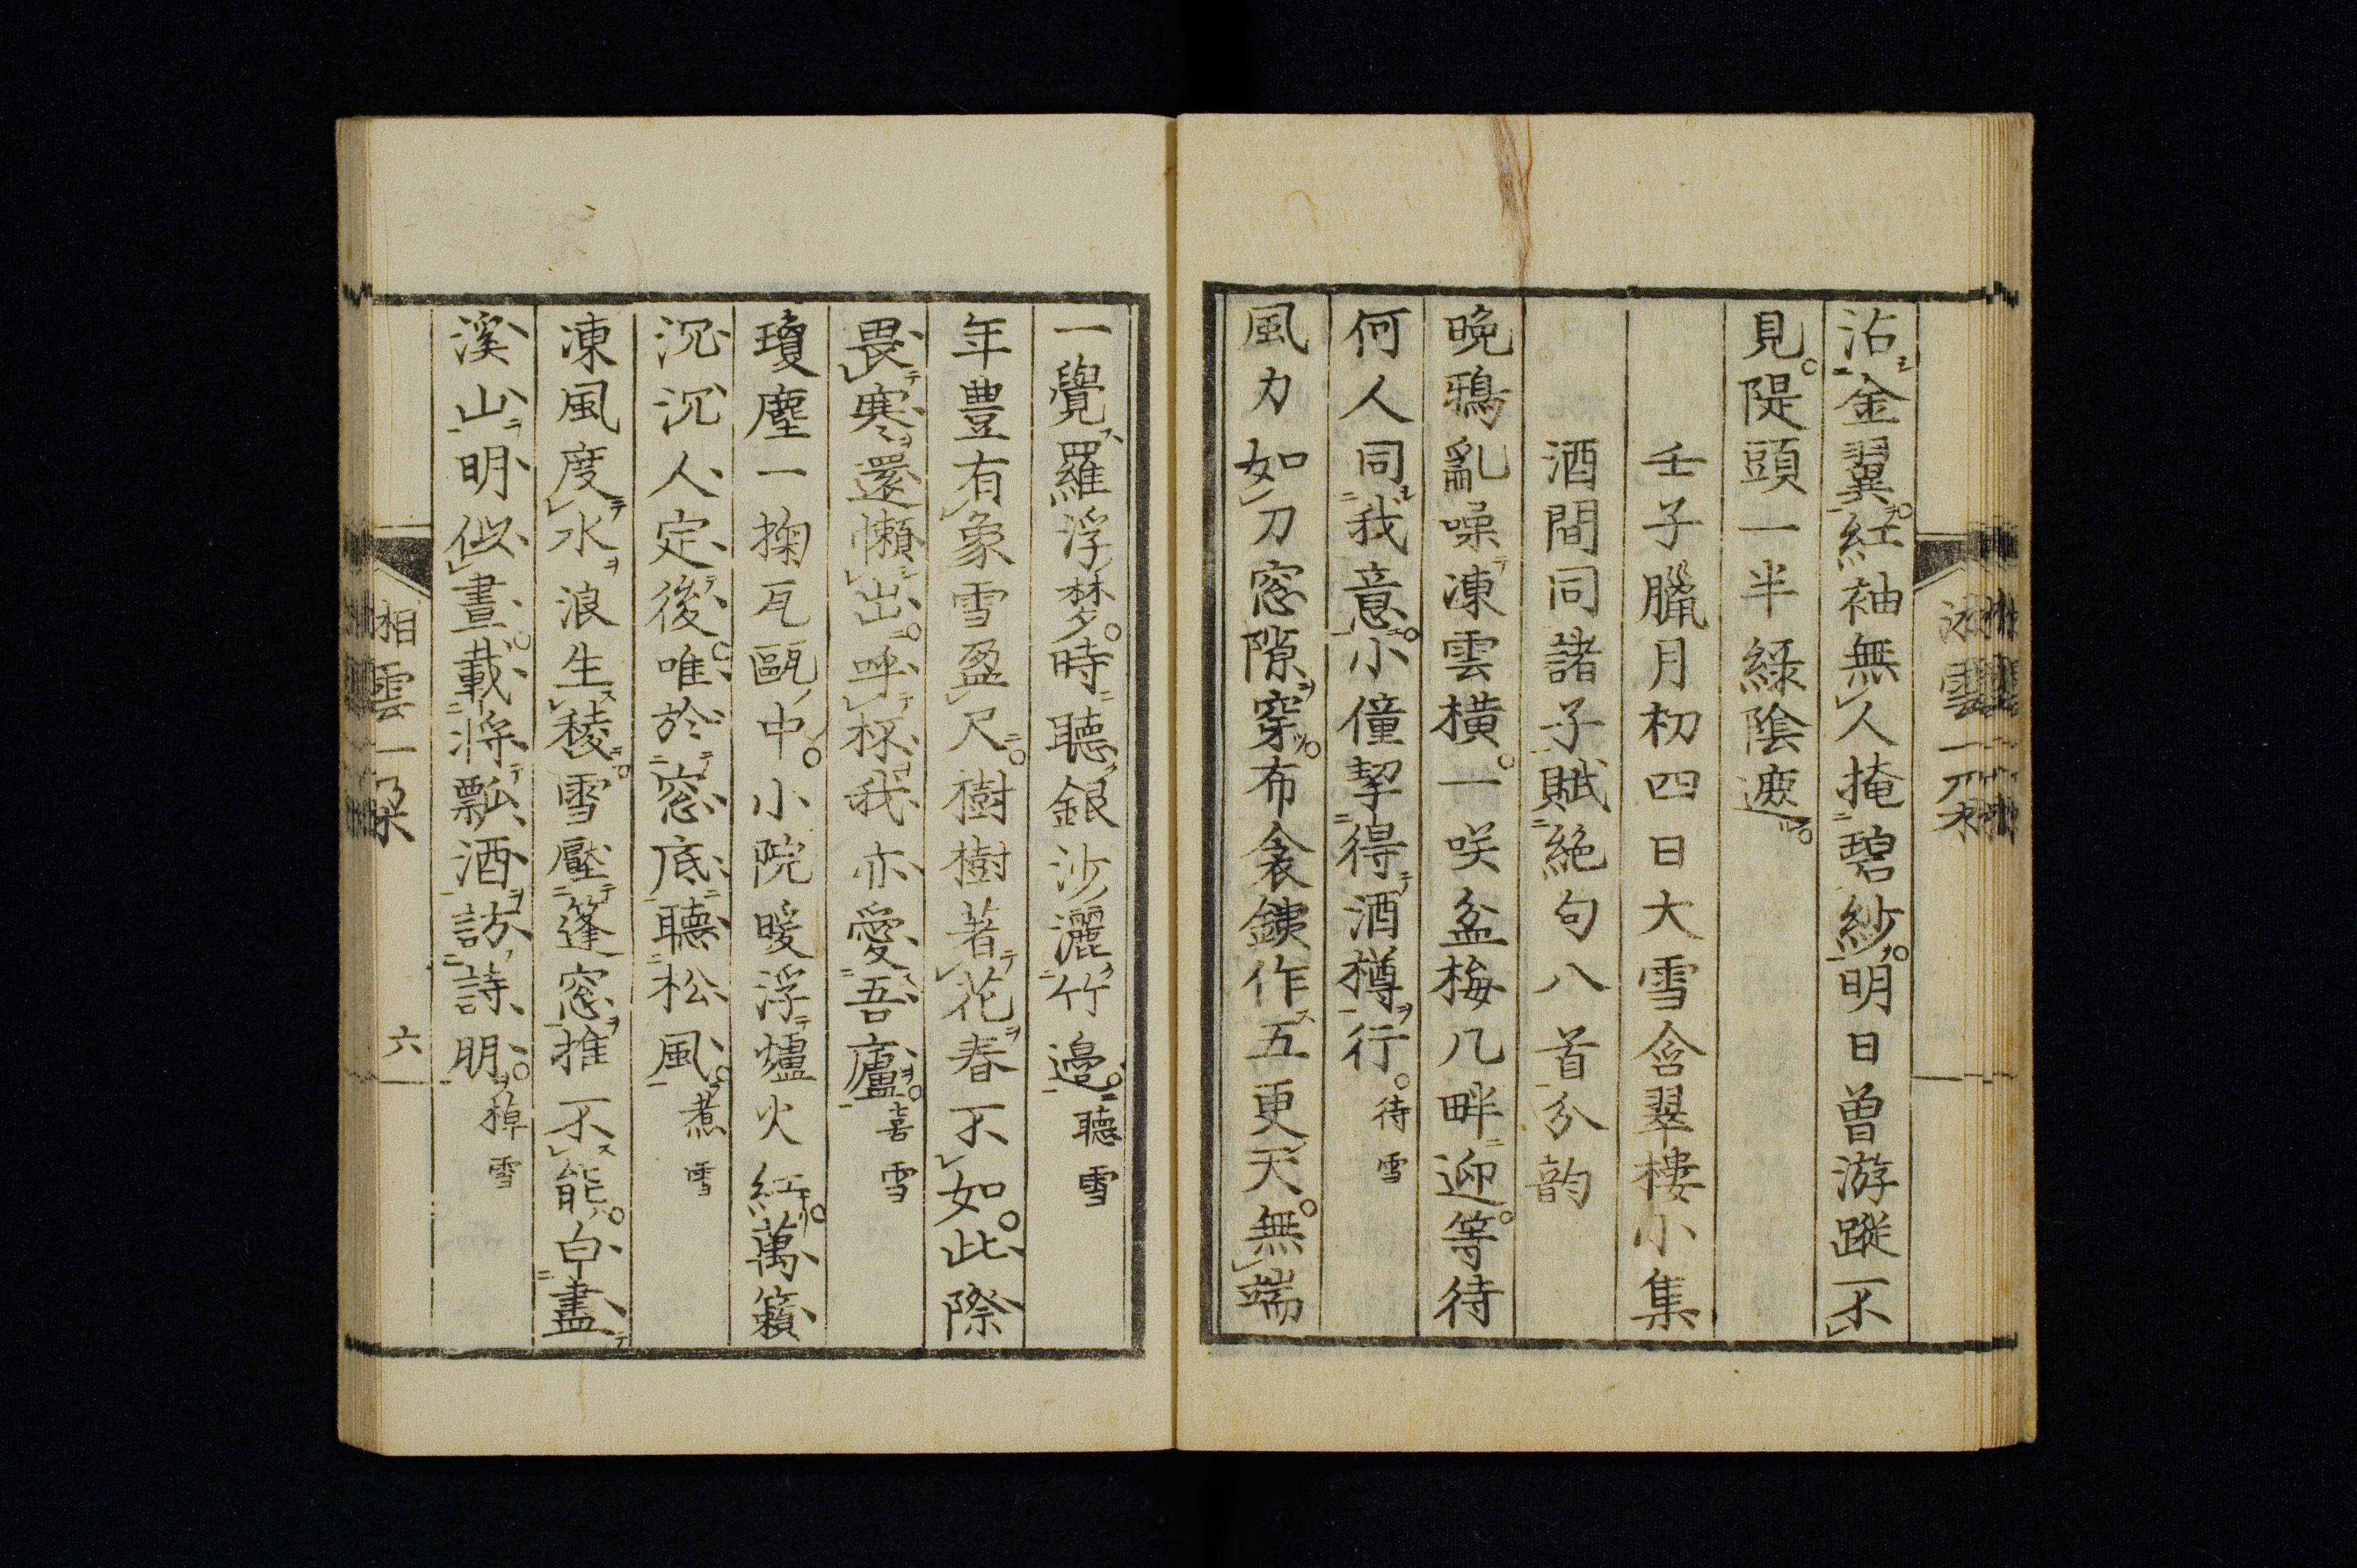 沾金翼紅袖無人掩碧紗明日曽游蹤不
見隄頭一半緑陰遮
壬子臘月初四日大雪含翠樓小集
酒間同諸子賦絶句八首分韵
晩鴉亂噪凍雲横一咲盆梅几畔迎等待
何人同我意小僮挈得酒樽行待雪
風力如刀窓隙穿布衾銕作五更天無端
一覺羅浮梦時聽銀沙灑竹邉聽雪
年豊有象雪盈尺樹樹著花春不如此際
畏寒還懶出呼杯我亦愛吾廬喜雪
瓊塵一掬瓦甌中小院暖浮爐火紅萬籟
沉沉人定後唯於窓底聽松風煮雪
凍風度水浪生稜雪壓篷窓推不能白盡
溪山明似晝載将瓢酒訪詩朋棹雪
相雲一朶
六